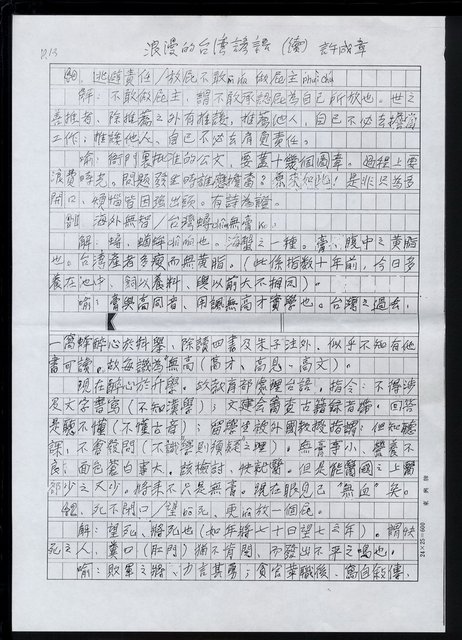 P.13 浪漫的台湾諺語（續） 許成章
逃避責任／放屁不敢 做屁主
解：不敢做屁主，謂不敢承認屁為自己所放也。世之
善推者，除推善之外有推諉，推善他人，自己不必去擔當
工作；推諉他人，自己不必去負責任。
喻：衙門裏批准的公文，要蓋十幾個圖章。過程上要
浪費時光。問題發生時誰應擔當？原來如此！是非只為多
開口，煩惱皆因強出頭。有詩為證。
海外無智／台灣蟳 無膏
解：蟳，蝤蛑 也。海蟹之一種。膏，腹中之黃脂
也。台湾產者多瘦而無黃脂。（此係指數十年前，今日多
養在池中，飼以養料，與以前大不相同）
喻：膏與高同音，用譏無高才實學也。台灣之過去，
一窩蜂醉心於科舉，除讀四書及朱子注外，似乎不知有他
書可讀。故每譏為無高（高才、高見、高文）。
現在醉心於升學。故教育部處理台語，指令：不得涉
及文字書寫（不知漢學）；文建會審查古籍錄音帶，回答
是聽不懂（不懂古音）；留學生被外國教授指謂，但知聽
課，不會發問（不識學則須疑之理）。無膏事小，營養不
良；面色蒼白事大。該檢討，快起醫。但是能醫國之上醫
却少之又少。將來不只是無膏。現在眼見已“無血”矣。
死不開口／望死，更 放一個屁。
解：望死，將死也（如年將七十曰望七之年）。謂快
死之人，糞口（肛門）猶不肯閉，而發出不平之鳴也。
喻：敗軍之將，力言其勇；貪官革職後，寫自敘傳，
24×25=600